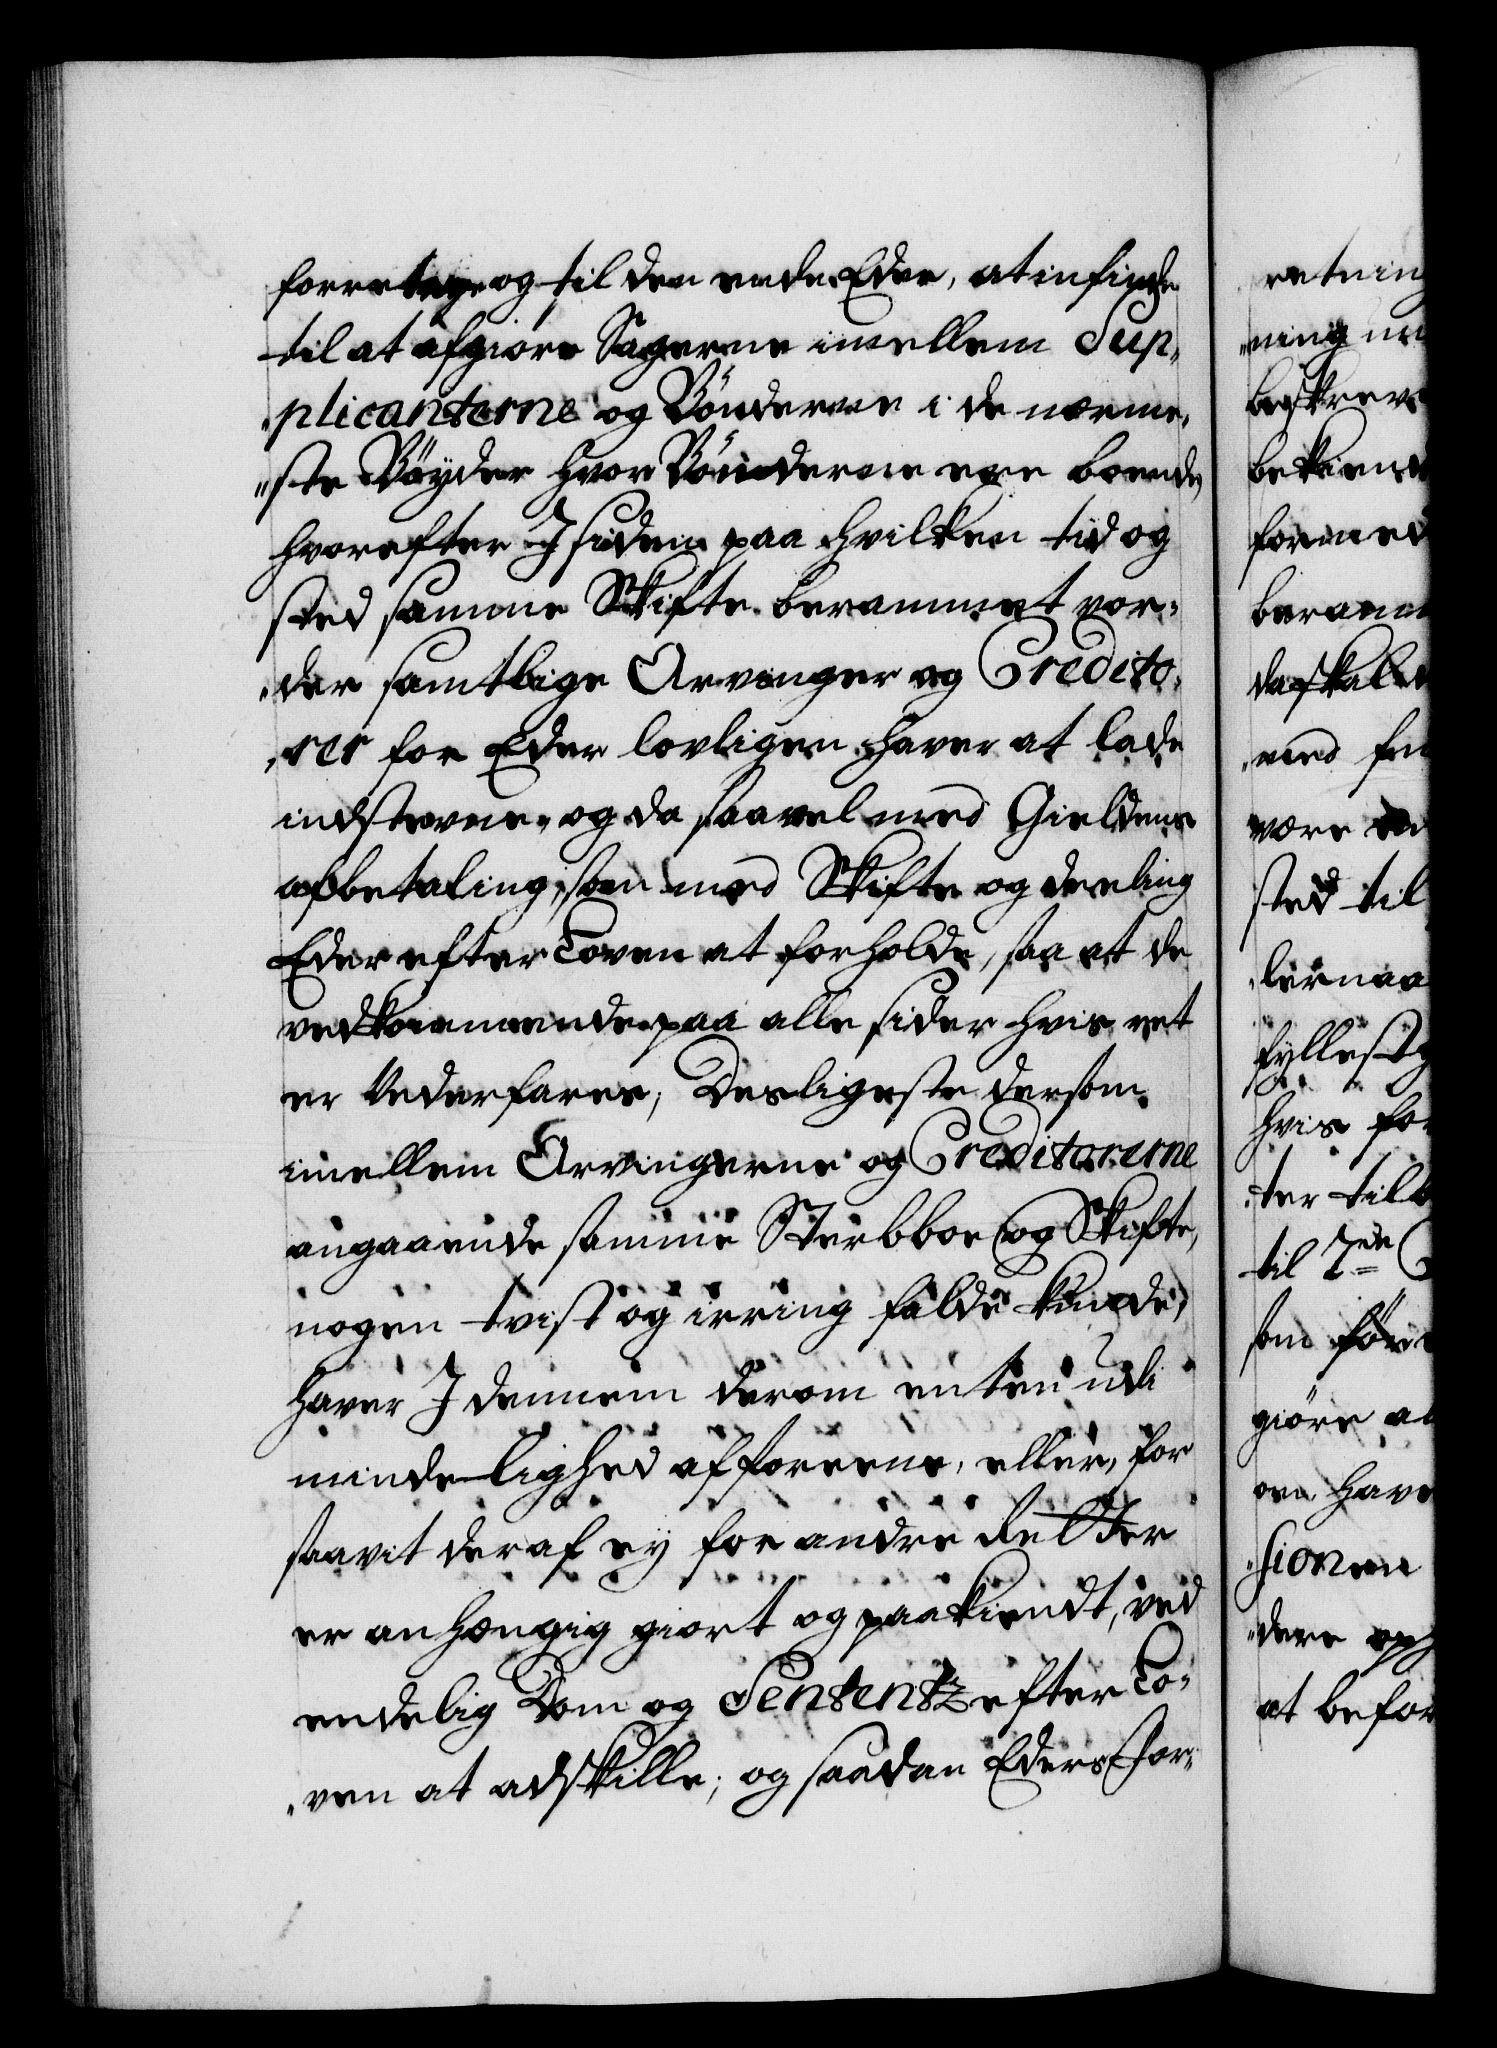 forretage og til den ende Eder, at infinde
til at afgiøre Sagerne imellem Sup„
„plicanterne og Bönderne i de nærme„
„ste Böyder hvor Bönderne ere boende,
hvorefter I siden paa hvilken tid og
sted samme Skifte berammet vor„
„der samtlige Arvinger og Credito„
„rer for Eder lovligen haver at lade
indstevne, og da saavel med Gieldens
afbetaling, som med Skifte og deeling
Eder efter Loven at forholde, saa at de
vedkommende paa alle sider hvis ret
er Vederfares, Desligeste dersom
imellem Arvingerne og Creditorerne
angaaende samme Sterbboe og Skifte,
nogen tvist og irring falde kunde,
haver I dennem derom enten udi
mindelighed afforeene, eller, for
saavit deraf ey for andre Retter
er anhængig giort og paakiendt, ved
endelig Dom og Sententz efter Lo„
„ven at adskille; og saadan Eders For„
retning
„ning un
beskreve
bekiend
formed
beram
da skal d
med fr
være
sted til
lernaa
fyllestg
hvis for
ter tilb
til 2de
som före
giöre a
en have
„sionen
„dere op
at befor